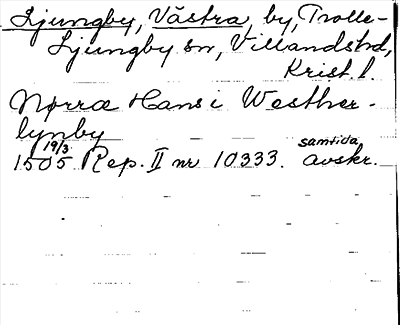 Ljungby, Västra, by, Trolle-
Ljungby sn, Villandshd,
Krist. l.
Nørræ Hans i Westher-
lynby
19/3
1505 Rep. II nr 10333. samtida
avskr.